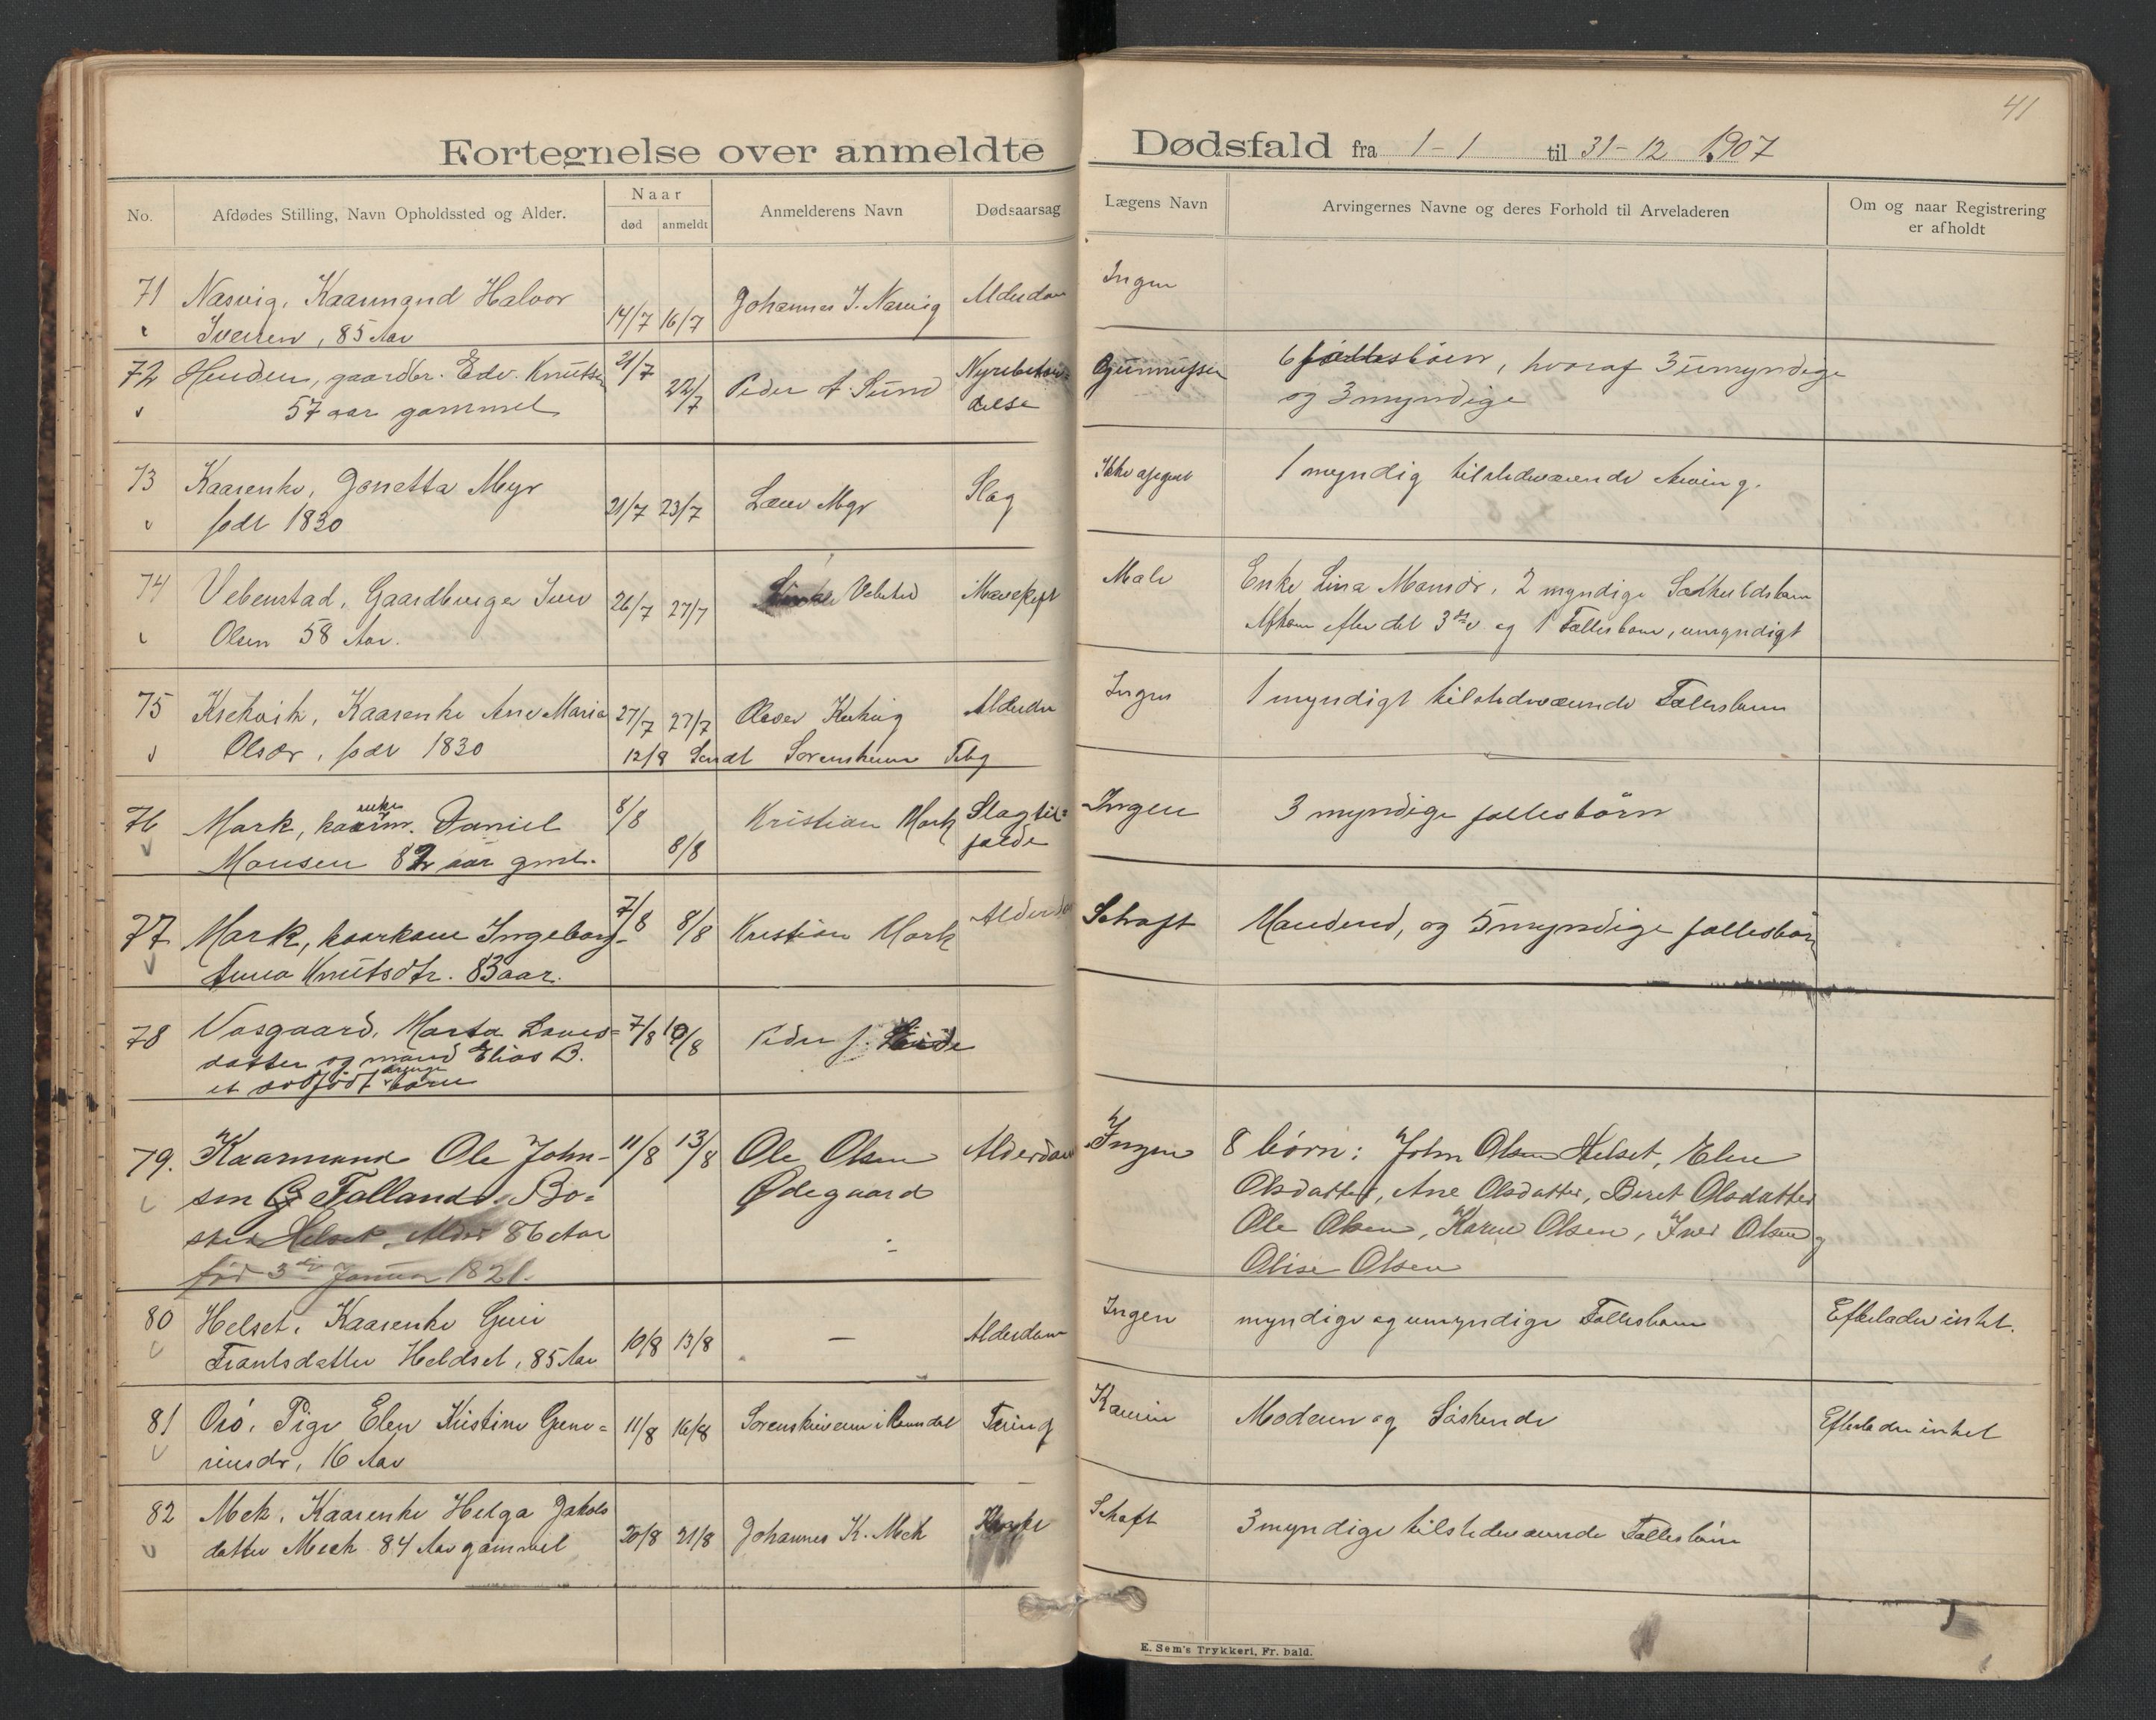 41
Fortegnelse over anmeldte Dødsfald fra 1-1 til 31-12 1907
No.
Afdødes Stilling, Navn Opholdssted og Alder.
Naar
død anmeldt
Anmelderens Navn
Dødsaarsag
Lægens Navn
Arvingernes Navne og deres Forhold til Arveladeren
Om og naar Registrering
er afholdt
71 Næsvig, Kaarmand Halvor 14/7 16/7 Johannes I. Næsvig Alderdom Ingen
Iversen, 85 Aar
72 Henden, gaardbr. Edv. Knutsen 21/7 22/7 Peder A. Sund Nyrebetæn-
57 aar gammel delse
6 fællesbörn, hvoraf 3 umyndige
og 3 myndige
73 Kaarenke, Jonetta Myr 21/7 23/7 Myr Slag Ikke 1 myndig tilstedeværende Arving.
født 1830
74 Vebenstad, Gaardbruger Iver 26/7 27/7
Olsen 58 Aar.
Male Enke Lina Monsdr, 2 myndige
Afkom efter det 3die og 1 Fællesbarn, umyndigt
75 Kaarenke Ane Maria 27/7 27/7 Alderdom Ingen 1 myndigt tilstedeværende Fællesbarn
Olsdr, født 1830 12/8 Sendt Sorenskriveren
76 Mark, kaarm. Daniel 8/8 8/8 Kristian Mark Slagtil-
enke
Monsen 82 aar gml. fælde
Ingen 3 myndige fællesbörn
77 Mark, kaarkone Ingeborg- 7/8 8/8 Kristian Mark Alderdom Schaft Manden, og 5 myndige fællesbörn
Anna Knutsdtr. 83 aar.
78 Vasgaard, Marta 7/8 10/8 Peder J.
datter og mand Elias B.
et dödfödt drenge barn
79. Kaarmand Ole John- 11/8 13/8 Ole Olsen Alderdom Ingen 8 börn: John Olsen Helset, Elen
sen Talland. Bo- Ødegaard Olsdatter, Ane Olsdatter, Beret Olsdatter
sted Helset, Alder 86 Aar Ole Olsen, Karen Olsen, Iver Olsen og
föd 3die Januar 1821. Olise Olsen
80 Helset, Kaarenke Guri 10/8 13/8 — Alderdom Ingen myndige og umyndige Fællesbarn Efterlader intet.
Frantsdatter Heldset, 85 Aar
81 Orö, Pige Elen Kristine Gune- 11/8 16/8 Sorenskriveren i Romsdal Tæring Moderen og Söskende Efterlader intet
riusdr, 16 Aar
82 Mek, Kaarenke Helga Jakobs 20/8 21/8 Johannes K. Mek Schaft 3 myndige tilstedeværende Fællesbörn
datter Meek 84 Aar gammel
E. Sem's Trykkeri, Fr. hald.